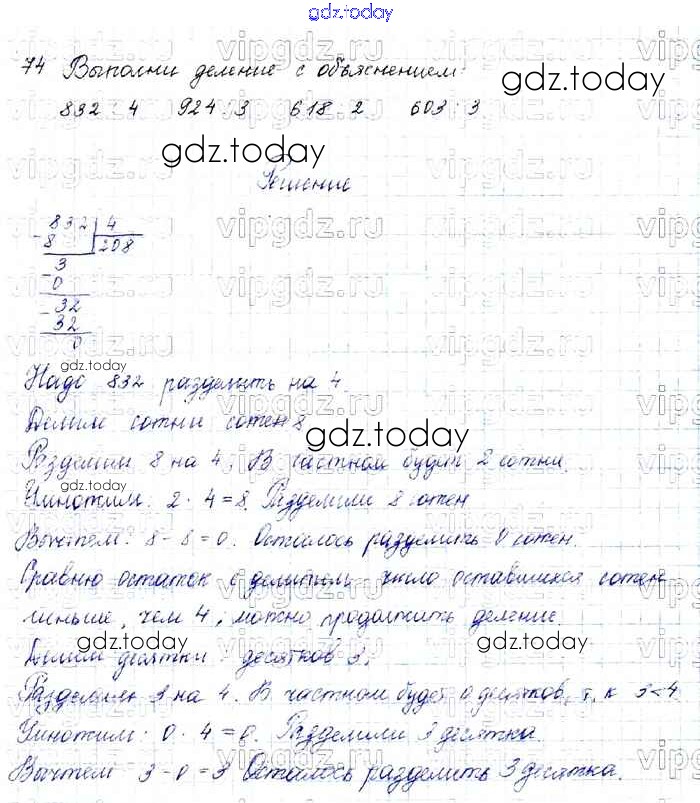 gdz.today
74 Выполни деление с объяснением:
832 : 4 924 : 3 618 : 2 603 : 3
gdz.today
gdz.today
Решение
832 | 4
- 8 208
3
- 0
- 32
32
0
gdz.today
Надо 832 разделить на 4.
Делим сотни сотен 8
gdz.today
Разделим 8 на 4. В частном будет 2 сотни.
Умножим: 2 · 4 = 8. Разделили 8 сотен
Вычтем: 8 - 8 = 0. Осталось разделить 0 сотен.
Сравню остаток с делителем число оставшихся сотен
меньше, чем 4, можно продолжить деление.
gdz.today gdz.today
Делим десятки: десятков 3.
Разделим 3 на 4. В частном будет 0 десятков, т. к 3<4
Умножим: 0 · 4 = 0. Разделили 3 десятка.
Вычтем 3 - 0 = 3 Осталось разделить 3 десятка.
vipgdz.ru